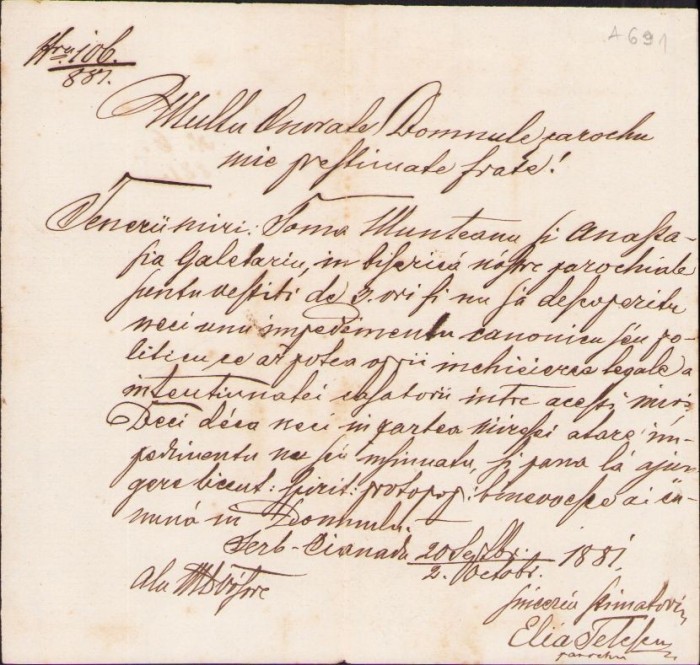 A 691
Nru 106.
881.
Multu Onorate Domnule parochu
mie prestimate frate!
Tenerii miri: Toma Munteanu si Anasta-
sia Galetariu, in biserica nóstre parochiale
suntu vestiti de 3. ori si nu sa descoperitu
neci unu impedimentu canonicu séu po-
liticu, ce ar potea opri inchieierea legale a
intentiunatei casatorii intre acesti miri.
Deci déca neci in partea miresei atare im-
pedimentu nu séu insinuatu, si pana la ajun-
gere licent: spirit: protopop: benevoesce ai cu-
nuná in Domnulu.
Serb-Cianadu 20 Septbr. 1881
2. Octobr.
Alu MDvóstre
sinceriu stimatoriu
Elia Telescu
parochu